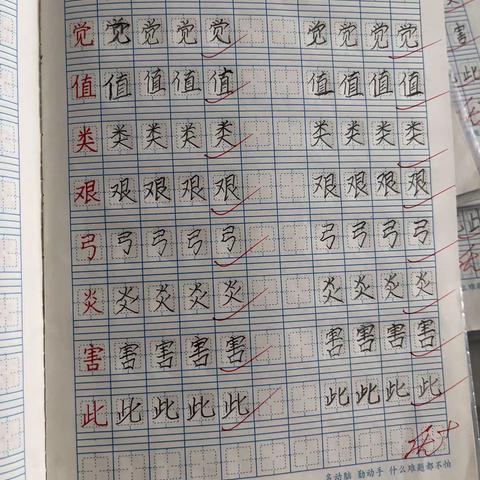 觉觉觉觉觉觉觉觉觉
值值值值值值值值值
类类类类类类类类类
艰艰艰艰艰艰艰艰艰
弓弓弓弓弓弓弓弓弓
炎炎炎炎炎炎炎炎炎
害害害害害害害害害
此此此此此此此此此
多动脑 勤动手 什么难题都不怕